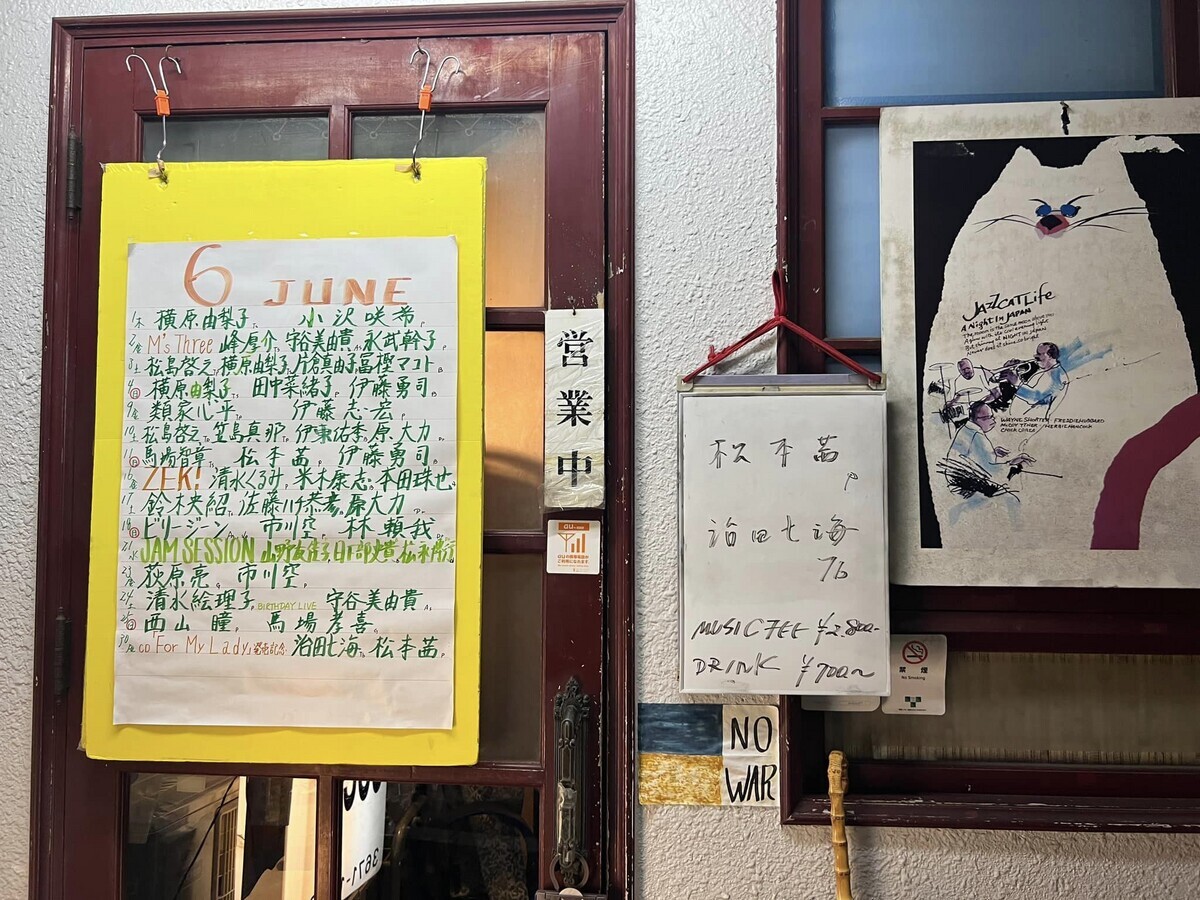 6 JUNE
1木 横原由梨子 Ts 小沢咲希 P
2金 M's Three 峰厚介 Ts 守谷美由貴 A 永武幹子 P
3土 松島啓之 横原由梨子 片倉真由子 冨樫マコト B
4日 横原由梨子 田中菜緒子 伊藤勇司
9金 類家心平 伊藤志宏 P
10土 松島啓之 笠島真那 伊東佑季 原大力
11日 馬場智章 松本茜 P 伊藤勇司
16金 ZEK! 清水くるみ 米木康志 本田珠也
17土 鈴木央紹 佐藤ハチ恭彦 原大力
18日 ビリージーン 市川空 P 林頼我
JAM SESSION
荻原亮 G 市川空 P
24土 清水絵理子 P BIRTHDAY LIVE 守谷美由貴 A
25日 西山瞳 P 馬場孝喜 G
30金 CD「For My Lady」発売記念 治田七海 Tb 松本茜 P
営業中
au
松本茜
P
治田七海
Tb
MUSIC FEE ¥2,800-
DRINK ¥700~
NO
WAR
禁煙
No Smoking
JAZZ CAT Life
A Night In JAPAN
WAYNE SHORTER · FREDDIE HUBBARD
McCOY TYNER · HERBIE HANCOCK
CHICK COREA
3671-